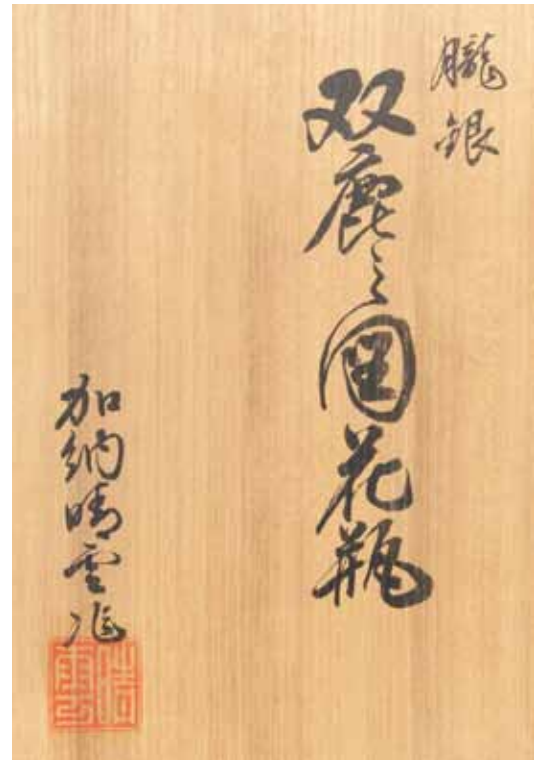 朧銀
双鹿之圖花瓶
加納晴雲作
晴雲